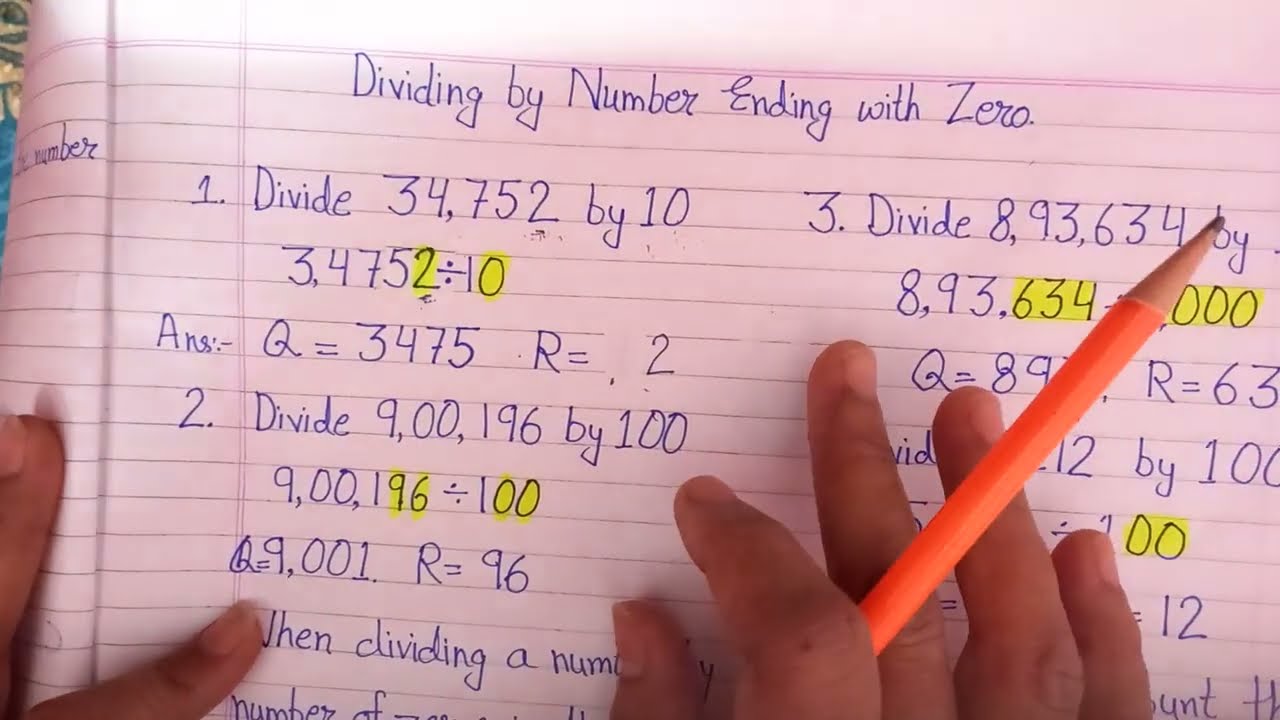 Dividing by Number Ending with Zero.
number
1. Divide 34,752 by 10
3,4752÷10
Ans:- Q = 3475 R = 2
2. Divide 9,00,196 by 100
9,00,196 ÷ 100
Q=9,001. R = 96
When dividing a
number of
3. Divide 8,93,634 by
8,93,634 ÷ ,000
Q= 89 , R = 63
12 by 100
÷ 100
= = 12